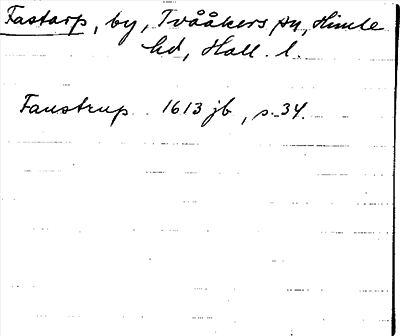 Fastarp, by, Tvååkers sn, Himle
hd, Hall. l.
Faustrup 1613 jb, s. 34.